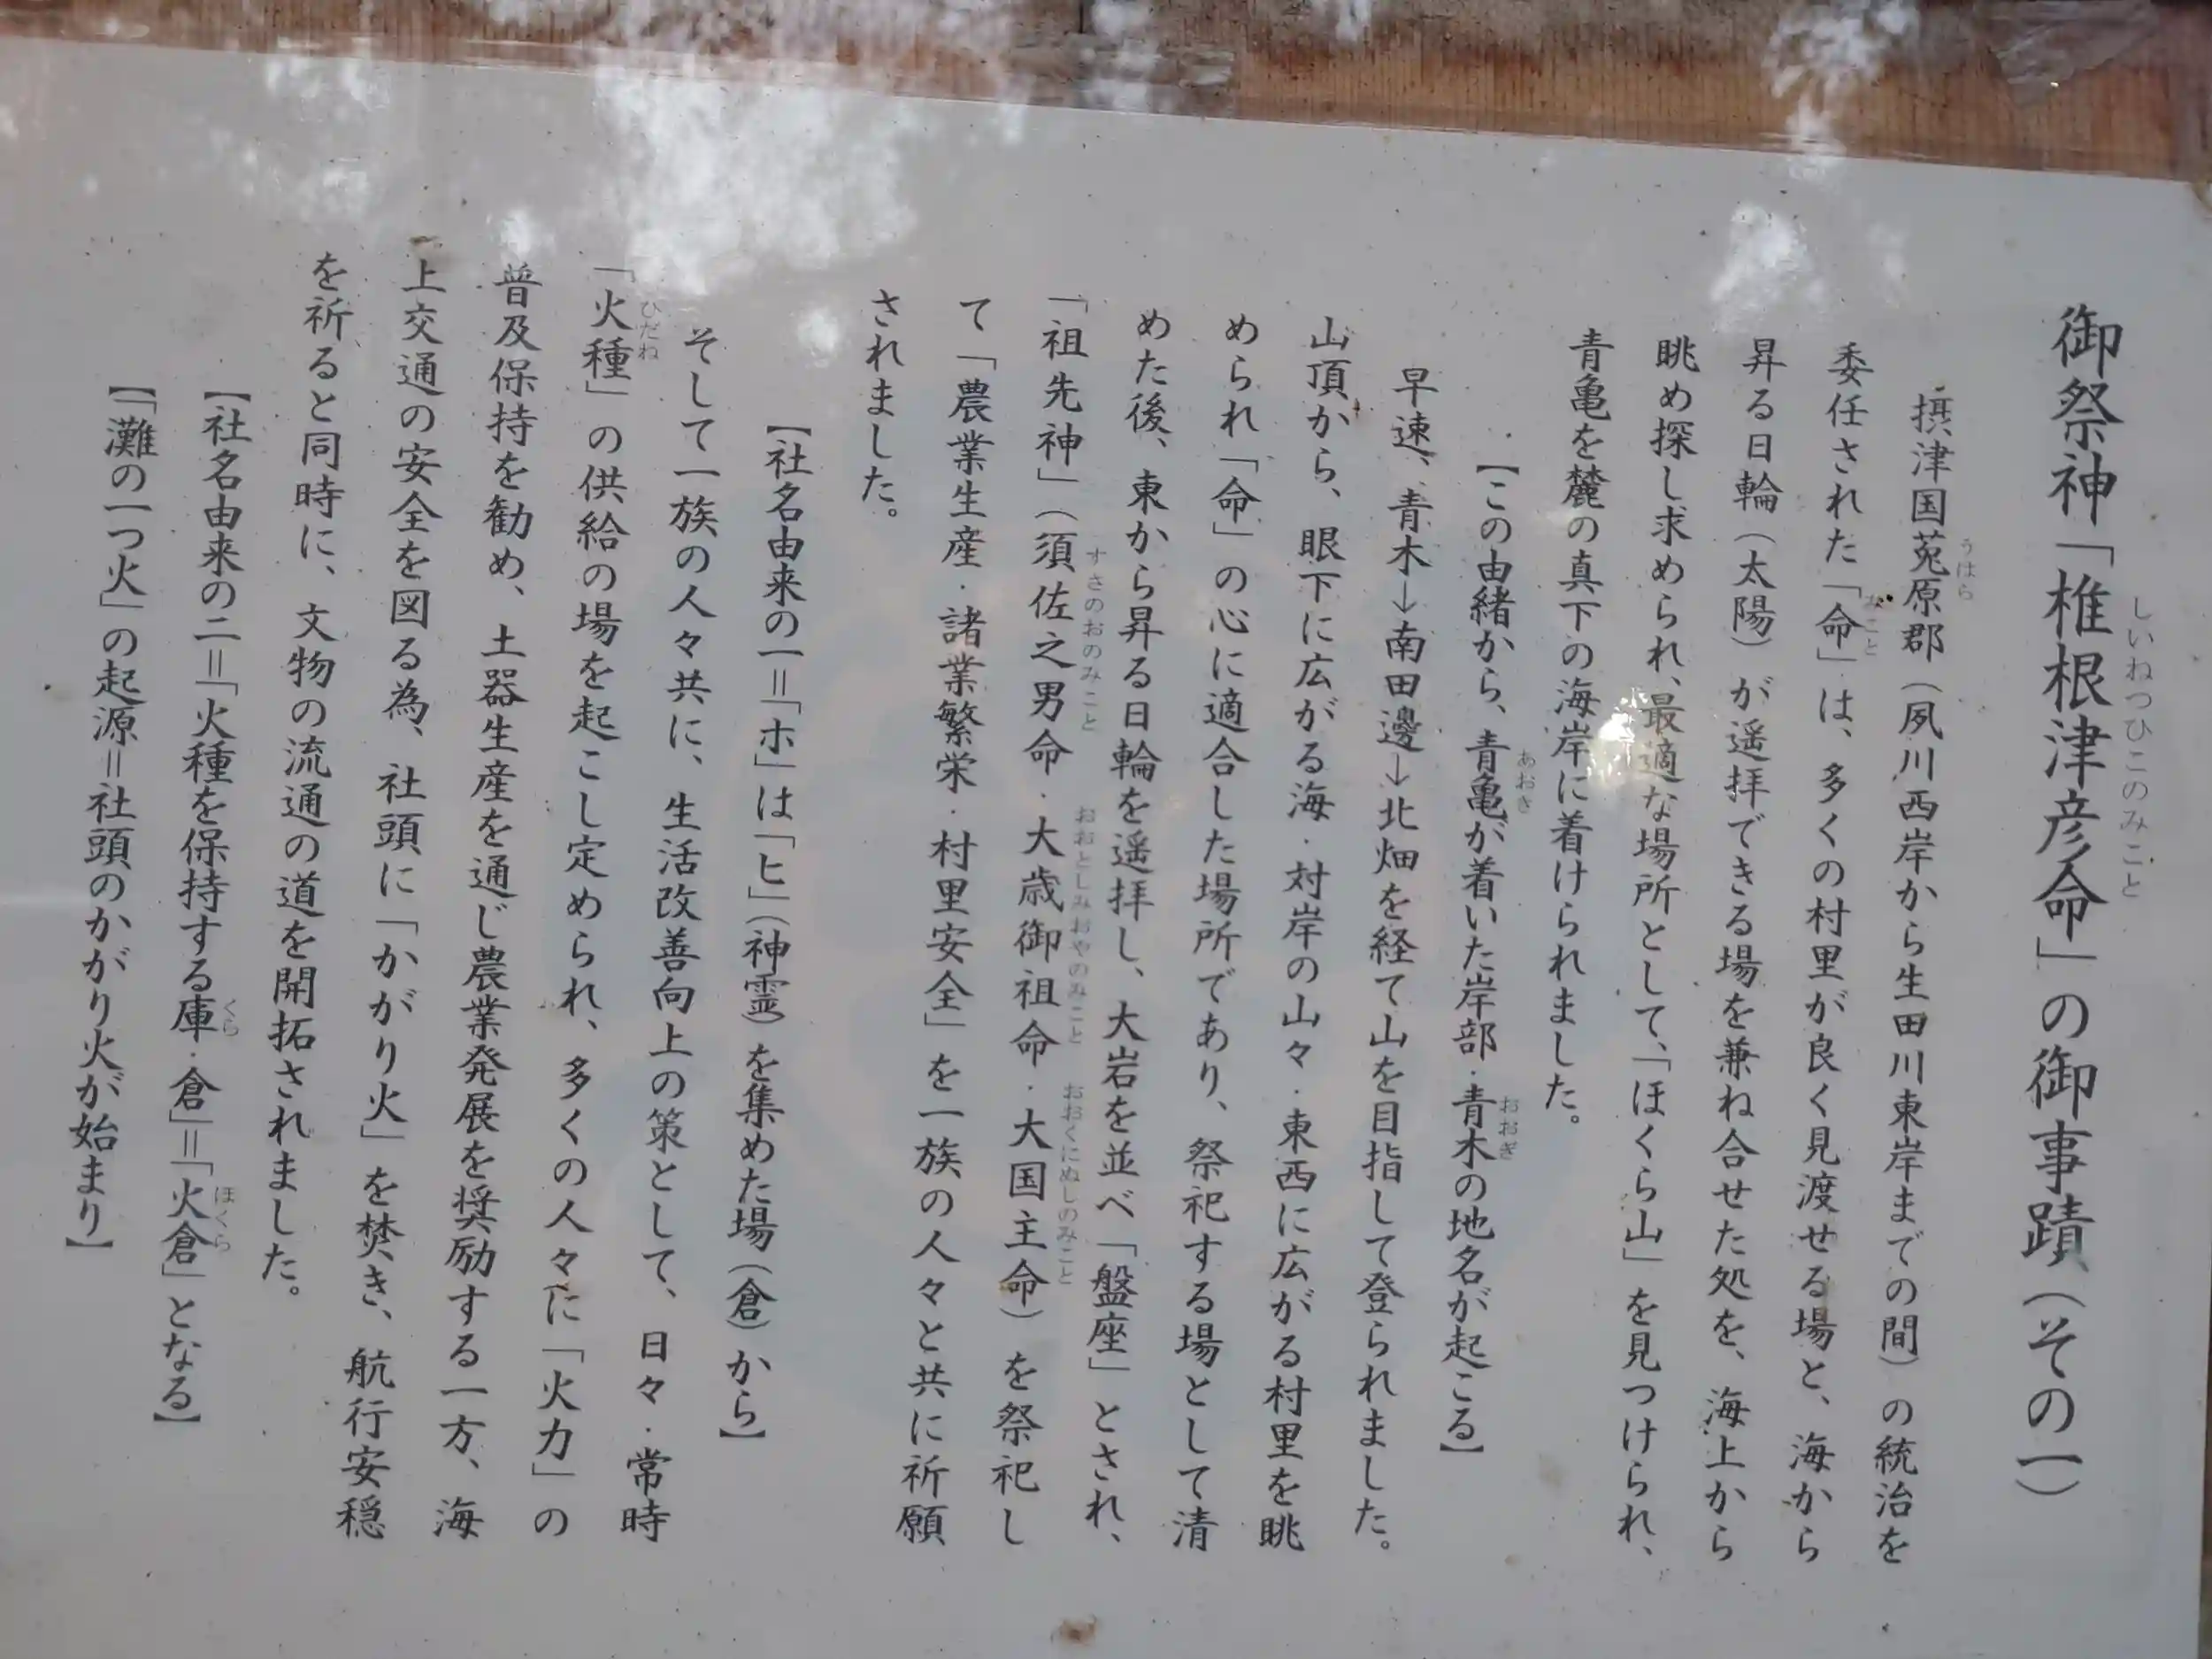 御祭神「椎根津彦命」の御事蹟(その一)
しいねつひこのみこと
摂津国菟原郡(夙川西岸から生田川東岸までの間)の統治を
うはら
委任された「命」は、多くの村里が良く見渡せる場と、海から
みこと
昇る日輪(太陽)が遥拝できる場を兼ね合せた処を、海上から
眺め探し求められ、最適な場所として、「ほくら山」を見つけられ、
青亀を麓の真下の海岸に着けられました。
【この由緒から、青亀が着いた岸部・青木の地名が起こる】
あおき
おおぎ
早速、青木→南田邊→北畑を経て山を目指して登られました。
山頂から、眼下に広がる海・対岸の山々・東西に広がる村里を眺
められ「命」の心に適合した場所であり、祭祀する場として清
めた後、東から昇る日輪を遥拝し、大岩を並べ「盤座」とされ、
「祖先神」(須佐之男命・大歳御祖命・大国主命)を祭祀し
すさのおのみこと
おおとしみおやのみこと
おおくにぬしのみこと
て「農業生産・諸業繁栄・村里安全」を一族の人々と共に祈願
されました。
【社名由来の一=「ホ」は「ヒ」(神霊)を集めた場(倉)から】
そして一族の人々共に、生活改善向上の策として、日々・常時
「火種」の供給の場を起こし定められ、多くの人々に「火力」の
ひだね
普及保持を勧め、土器生産を通じ農業発展を奨励する一方、海
上交通の安全を図る為、社頭に「かがり火」を焚き、航行安穏
を祈ると同時に、文物の流通の道を開拓されました。
【社名由来の二=「火種を保持する庫・倉」=「火倉」となる】
くら
ほくら
【「灘の一つ火」の起源=社頭のかがり火が始まり】